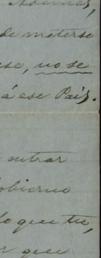 de meterse
ese, no se
á ese País.
entrar
obierno
lo que tu,
que